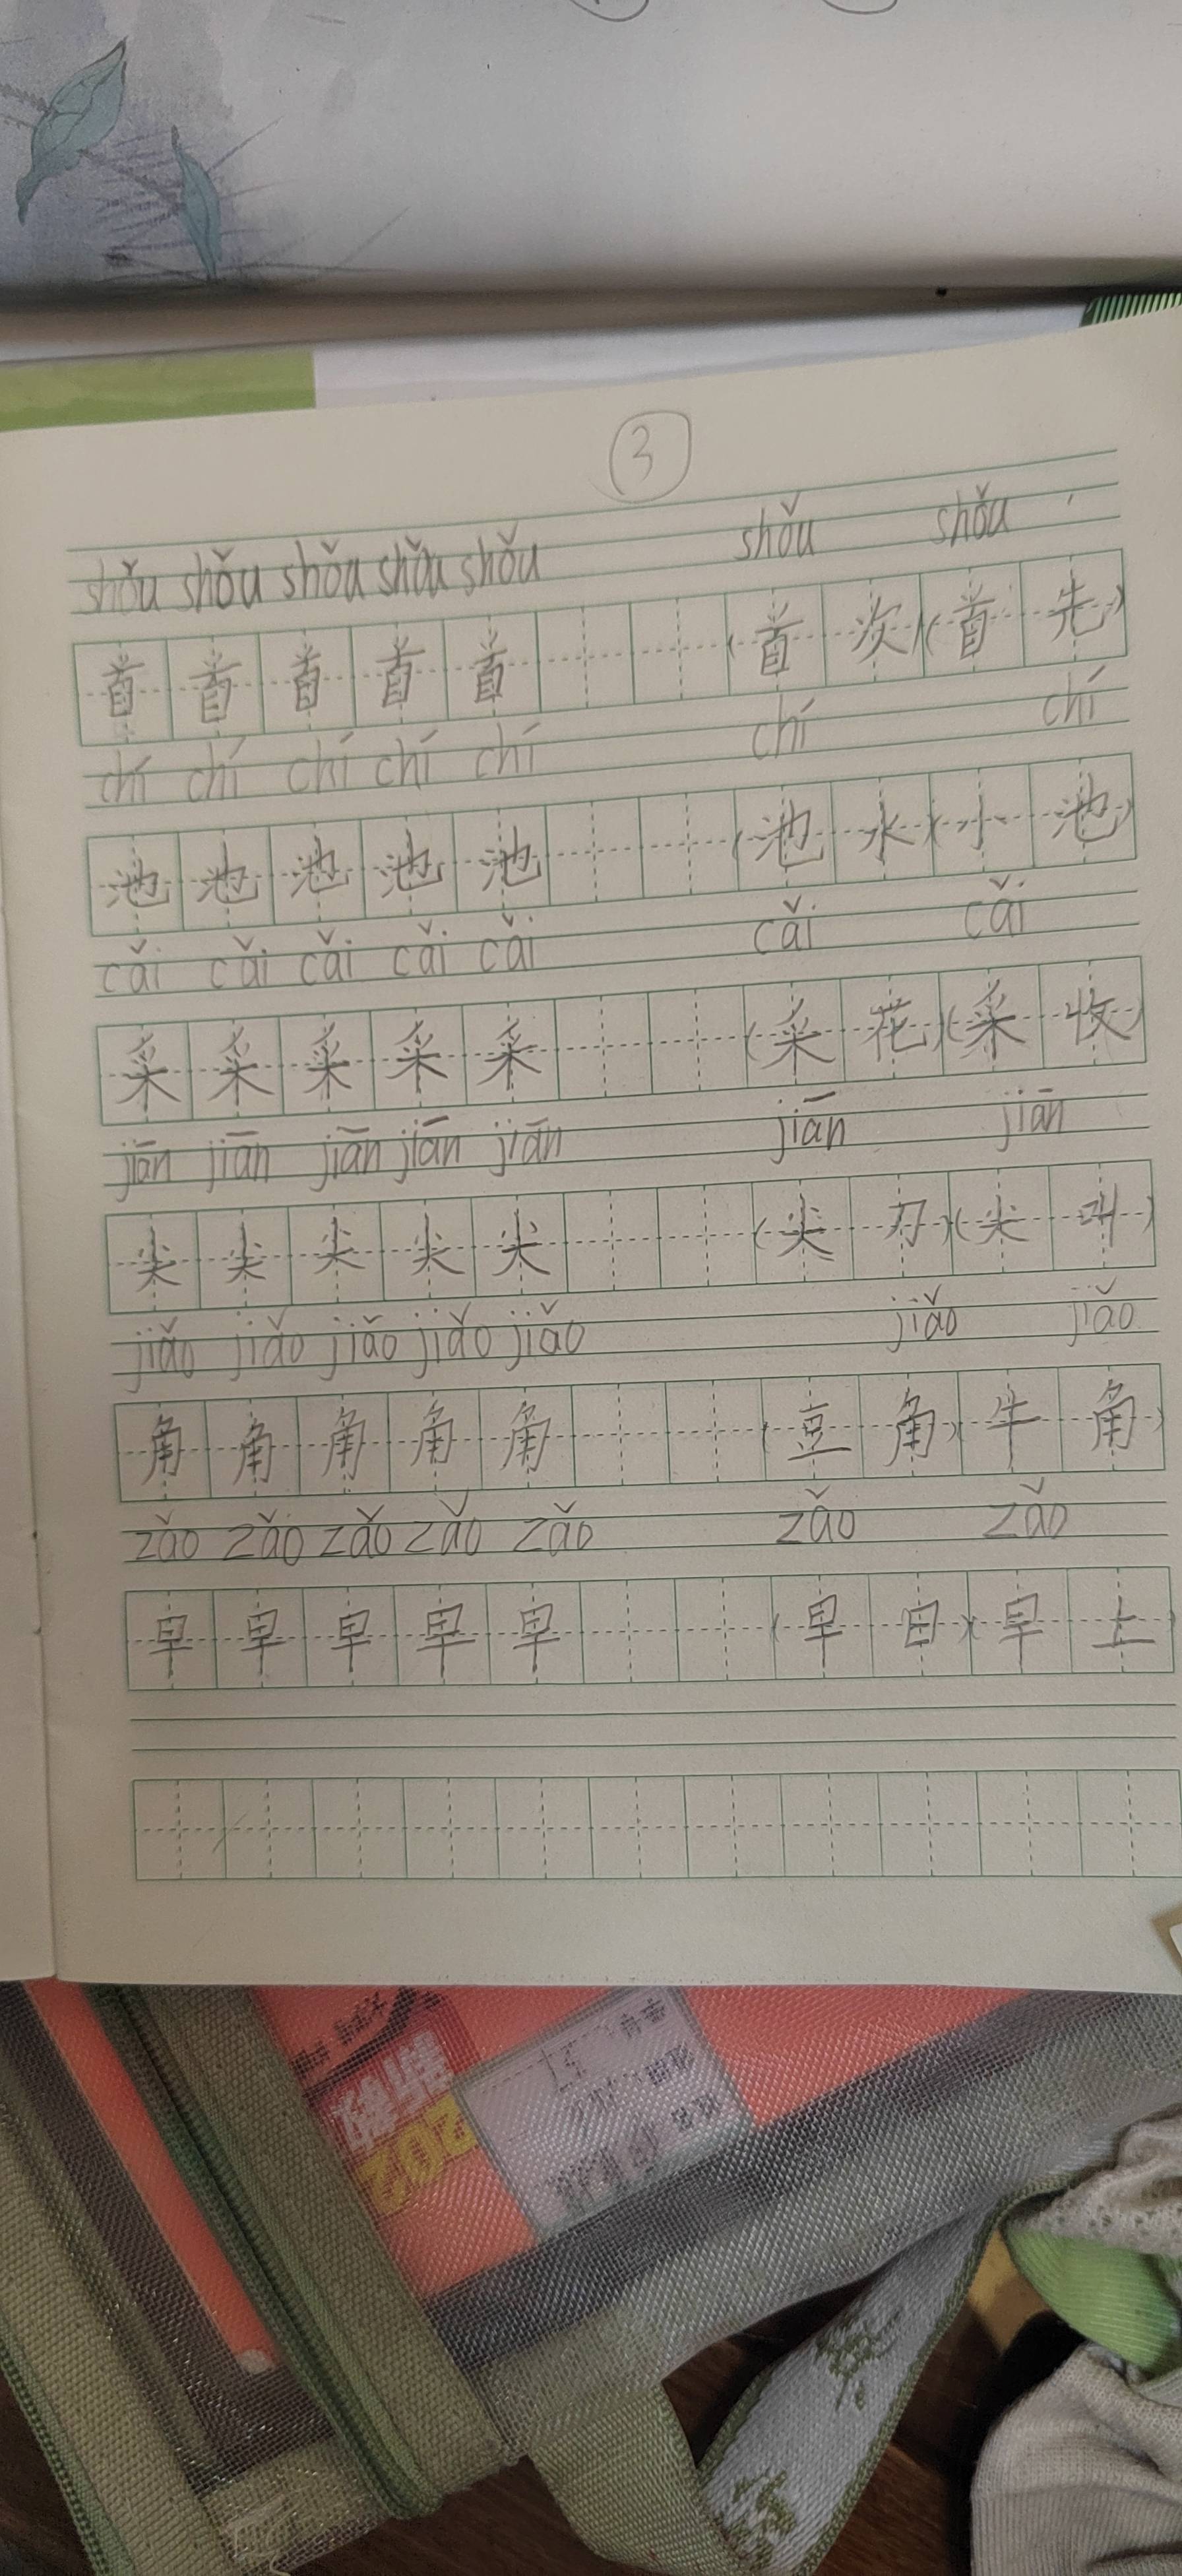 3
shǒu shǒu shǒu shǒu shǒu shǒu shǒu
首 首 首 首 首 (首 次)(首 先)
chí chí chí chí chí chí chí
池 池 池 池 池 (池 水)(小 池)
cǎi cǎi cǎi cǎi cǎi cǎi cǎi
采 采 采 采 采 (采 花)(采 收)
jiān jiān jiān jiān jiān jiān jiān
尖 尖 尖 尖 尖 (尖 刀)(尖 叫)
jiǎo jiǎo jiǎo jiǎo jiǎo jiǎo jiǎo
角 角 角 角 角 (豆 角)牛 角)
zǎo zǎo zǎo zǎo zǎo zǎo zǎo
早 早 早 早 早 (早 日)(早 上)